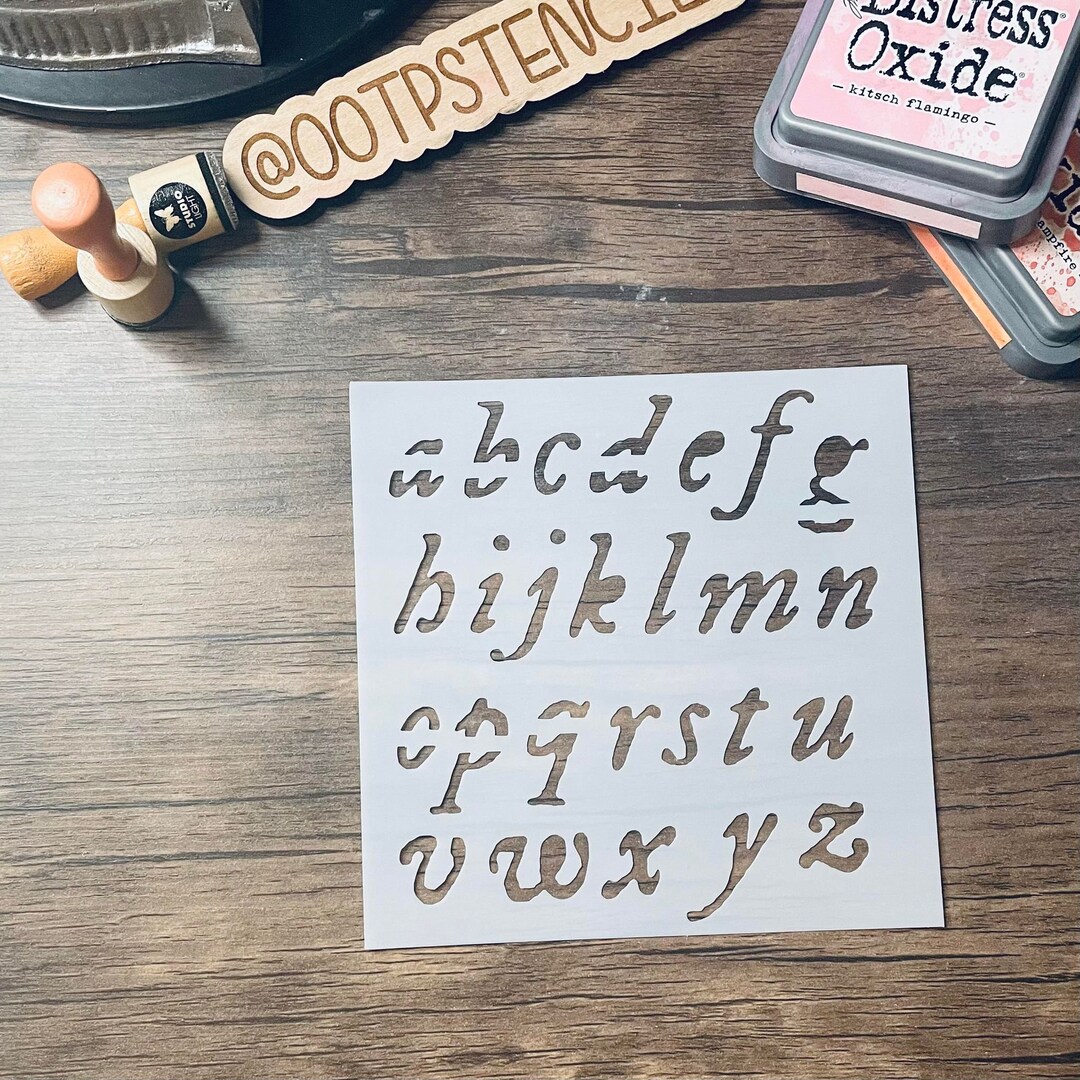 @OOTPSTENCIL
Distress
Oxide®
— kitsch flamingo —
STUDIO
LIGHT
ampfire
a b c d e f g
h i j k l m n
o p q r s t u
v w x y z